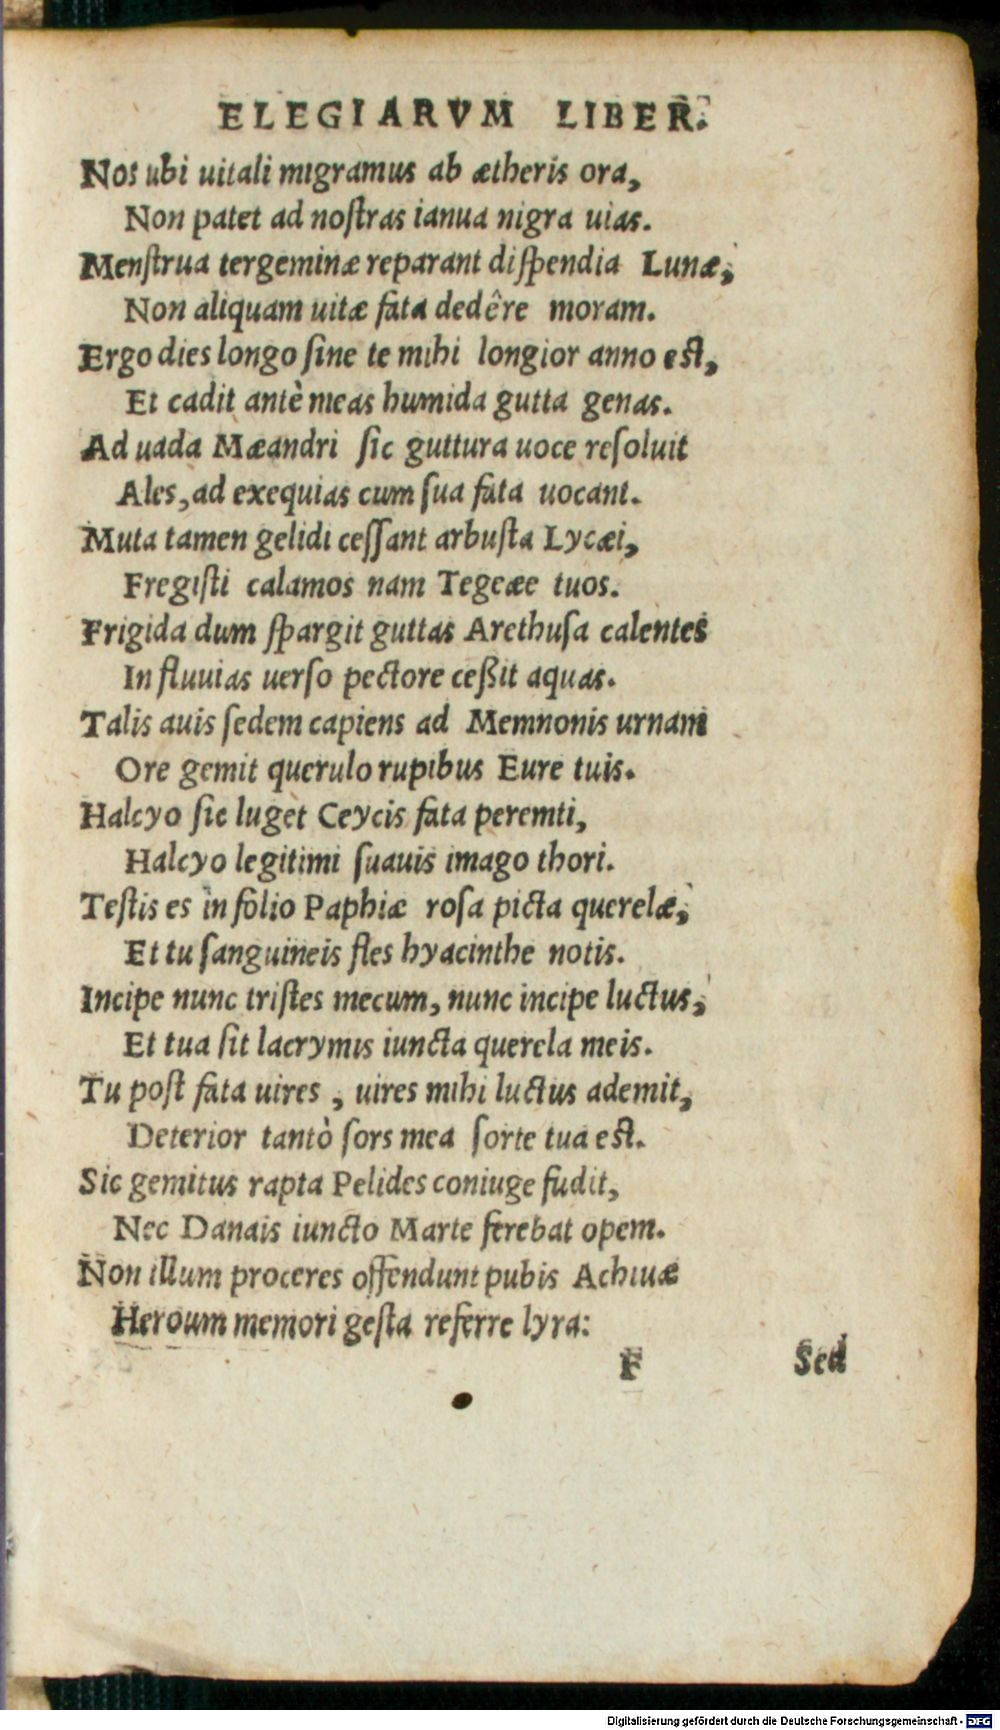 ELEGIARVM LIBER.
Nos ubi uitali migramus ab ætheris ora,
Non patet ad noſtras ianua nigra uias.
Menſtrua tergeminæ reparant diſpendia Lunæ,
Non aliquam uitæ fata dedêre moram.
Ergo dies longo ſine te mihi longior anno eſt,
Et cadit antè meas humida gutta genas.
Ad uada Mæandri ſic guttura uoce reſoluit
Ales, ad exequias cum ſua fata uocant.
Muta tamen gelidi ceſſant arbuſta Lycæi,
Fregiſti calamos nam Tegeæe tuos.
Frigida dum ſpargit guttas Arethuſa calentes
In fluuias uerſo pectore ceßit aquas.
Talis auis ſedem capiens ad Memnonis urnam
Ore gemit querulo rupibus Eure tuis.
Halcyo ſic luget Ceycis fata peremti,
Halcyo legitimi ſuauis imago thori.
Teſtis es in folio Paphiæ roſa picta querelæ,
Et tu ſanguineis fles hyacinthe notis.
Incipe nunc triſtes mecum, nunc incipe luctus,
Et tua ſit lacrymis iuncta querela meis.
Tu poſt fata uires, uires mihi luctus ademit,
Deterior tantò ſors mea ſorte tua eſt.
Sic gemitus rapta Pelides coniuge fudit,
Nec Danais iuncto Marte ferebat opem.
Non illum proceres offendunt pubis Achiuæ
Heroum memori geſta referre lyra:
F Sed
Digitalisierung gefördert durch die Deutsche Forschungsgemeinschaft - DFG